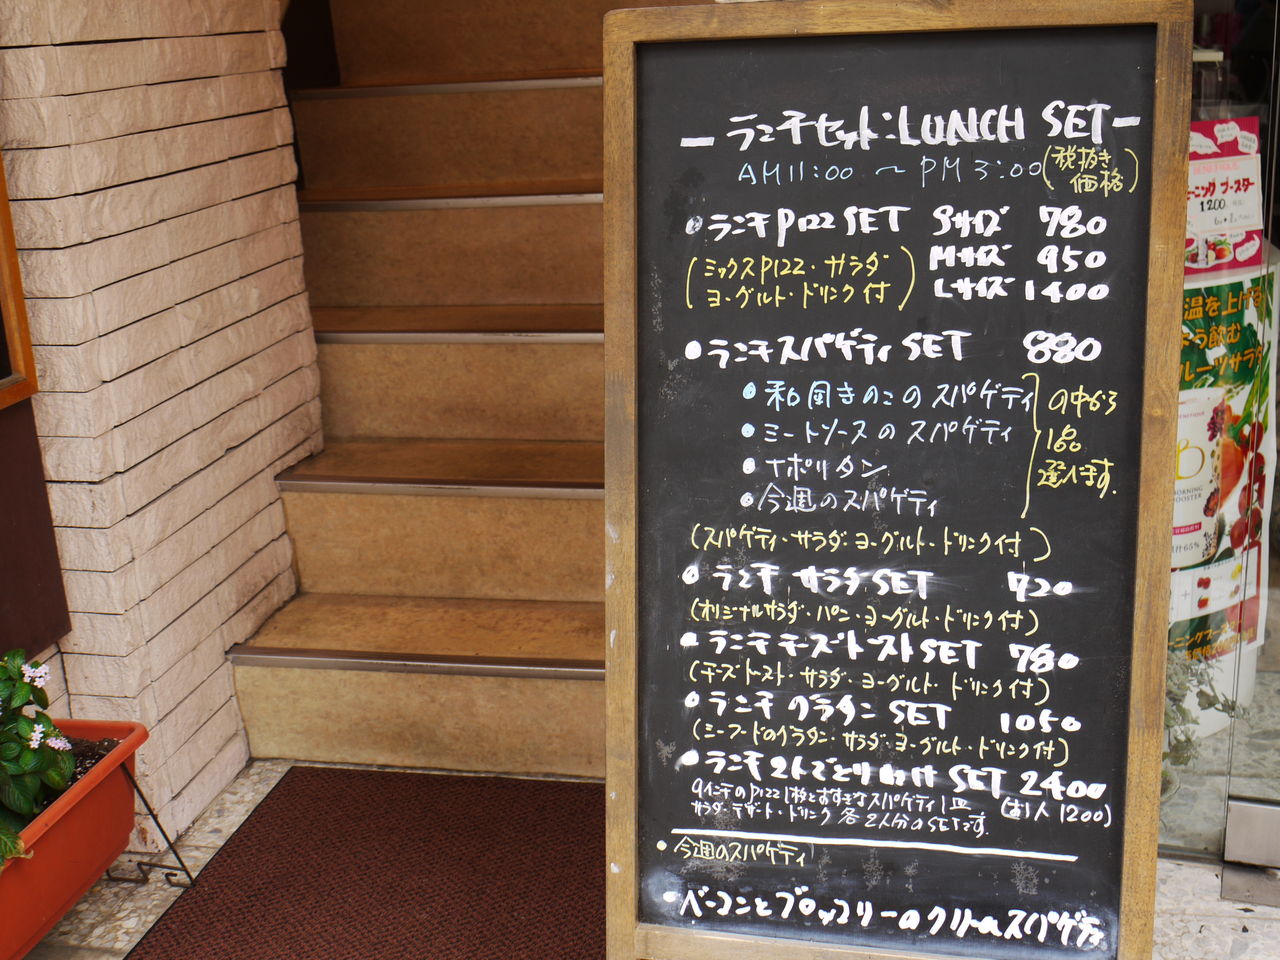 ランチセット:LUNCH SET
AM11:00 ~ PM3:00(税抜き価格)
・ランチPIZZ SET Sサイズ 780
Mサイズ 950
(ミックスPIZZ・サラダ
ヨーグルト・ドリンク付)
Lサイズ 1400
・ランチスパゲティSET 880
・和風きのこのスパゲティ
・ミートソースのスパゲティ
・ナポリタン
・今週のスパゲティ
の中から
1品
選べます。
(スパゲティ・サラダ・ヨーグルト・ドリンク付)
・ランチ サラダSET 720
(オリジナルサラダ・パン・ヨーグルト・ドリンク付)
・ランチチーズトーストSET 780
(チーズトースト・サラダ・ヨーグルト・ドリンク付)
・ランチ グラタン SET 1050
(シーフードのグラタン・サラダ・ヨーグルト・ドリンク付)
・ランチ2人でとりわけ SET 2400
9インチのPIZZ1枚とお好きなスパゲティ1皿 (お1人 1200)
サラダ・デザート・ドリンク 各2人分のSETです。
・今週のスパゲティ
・ベーコンとブロッコリーのクリームスパゲティ
ーニング ブースター
1200
温を上げる
う飲む
ルーツサラダ
B
ORNING
OOSTER
65%